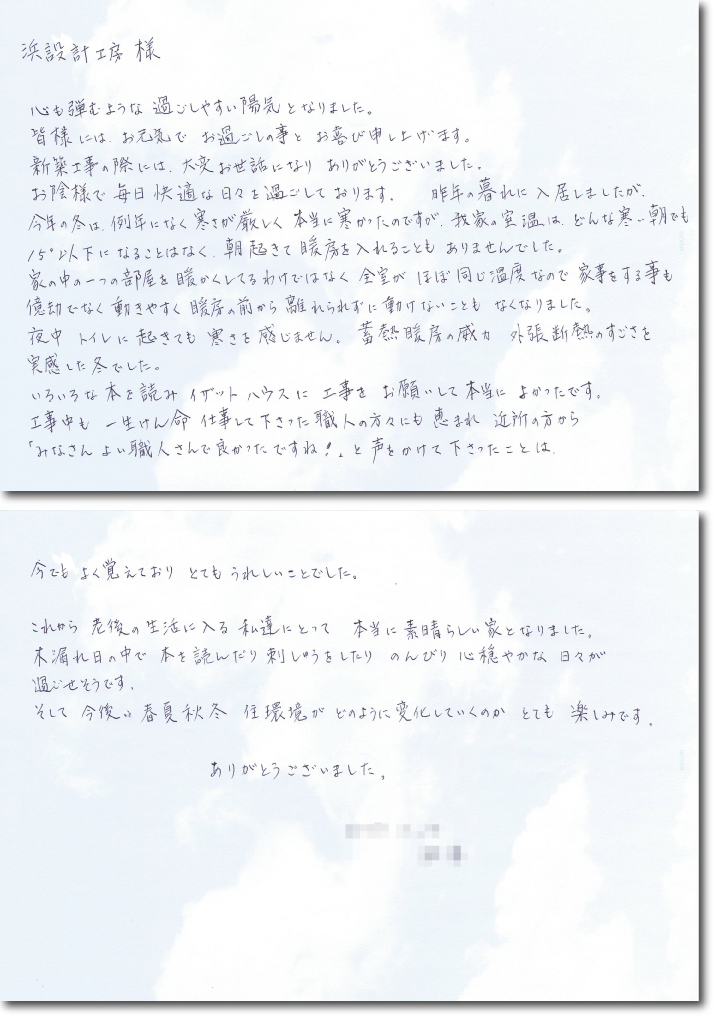 浜設計工房 様
心も弾むような 過ごしやすい陽気となりました。
皆様には、お元気で お過ごしの事と お喜び申し上げます。
新築工事の際には、大変お世話になり ありがとうございました。
お陰様で 毎日 快適な日々を過ごしております。 昨年の暮れに入居しましたが、
今年の冬は、例年になく寒さが厳しく 本当に寒かったのですが、我家の室温は、どんな寒い朝でも
15°以下になることはなく、朝起きて暖房を入れることも ありませんでした。
家の中の一つの部屋を暖かくしてるわけではなく 全室が ほぼ同じ温度なので 家事をする事も
億劫でなく 動きやすく 暖房の前から 離れられずに動けないことも なくなりました。
夜中 トイレに起きても 寒さを感じません。 蓄熱暖房の威力 外張断熱のすごさを
実感した冬でした。
いろいろな本を読み イザットハウスに 工事を お願いして本当に よかったです。
工事中も 一生けん命 仕事して下さった職人の方々にも 恵まれ 近所の方から
「みなさん よい職人さんで良かったですね！」と声をかけて下さったことは、
今でも よく覚えており とても うれしいことでした。
これから 老後の生活に入る 私達にとって 本当に素晴らしい家となりました。
木漏れ日の中で 本を読んだり 刺しゅうをしたり のんびり 心穏やかな 日々が
過ごせそうです。
そして 今後の 春夏秋冬 住環境が どのように変化していくのか とても 楽しみです。
ありがとうございました。